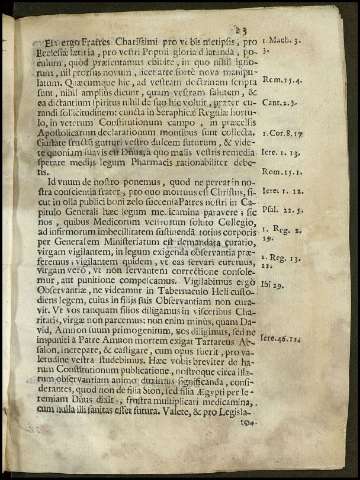 23
Eia ergo Fratres Charissimi pro vobis metipsis, pro
Ecclesiæ lætitia, pro vestri Populi gloria dilatanda, po-
culum, quod præsentamus ebibite, in quo nihil igno-
tum, nil prorsus novum, licet arte forte nova manipu-
latum. Quæcumque hic, ad vestram doctrinam scripta
sunt, nihil amplius dicunt, quam vestram salutem, &
ea dictantium spiritus nihil de suo hic voluit, præter cu-
randi solicitudinem: cuncta in Seraphicæ Regulæ hortu-
lo, in veterum Constitutionum campo, in præcelsis
Apostolicarum declarationum montibus sunt collecta.
Gustate frustis gutturi vestro dulcem suturum, & vide-
te quoniam suavis est Dñus, a quo malis vestris remedia
sperate medijs legum Pharmacis rationabiliter debe-
tis.
Id vnum de nostro ponemus, quod ne pereat in no-
stra conscientia frater, pro quo mortuus est Christus, si-
cut in olla publici boni zelo succensa Patres nostri in Ca-
pitulo Generali hæc legum medicamina paravere; sic
nos, quibus Medicorum vestrorum soluto Collegio,
ad infirmorum imbecilitatem sustinenda totius corporis
per Generalem Ministeriatum est demandata curatio,
virgam vigilantem, in legum exigenda observantia præ-
feremus; vigilantem quidem, vt eas servari curemus,
virgam verò, vt non servantem correctione console-
mur, aut punitione compescamus. Vigilabimus ergo
Observantiæ, ne videamur in Tabernaculo Heli custo-
diens legem, cuius in filijs suis Observantiam non cura-
vit. Vt vos tanquam filios diligamus in visceribus Cha-
ritatis, virgæ non parcemus: non enim minus, quam Da-
vid, Amnon suum primogenitum, vos diligimus, sed ne
impuniti à Patre Amnon mortem exigat Tartareus Ab-
salon, increpare, & castigare, cum opus fuerit, pro va-
letudine vestra studebimus. Hæc vobis breviter de ha-
rum Constitutionum publicatione, nostroque circa illa-
rum observantiam animo duximus significanda, consi-
derantes, quod non de filia Sion, sed filia Ægypti per Ie-
remiam Dñus dixit, frustra multiplicari medicamina,
cum nulla illi sanitas esset futura. Valete, & pro Legisla-
1 Mach. 3.
3.
Rom. 15. 4.
Cant. 2. 3.
1. Cor. 8. 17
Iere. 1. 13.
Rom. 15. 1.
Iere. 1. 12.
Psal. 22. 5.
1. Reg. 2.
29.
2. Reg. 13.
21.
Ibi 29.
Iere. 46. 11